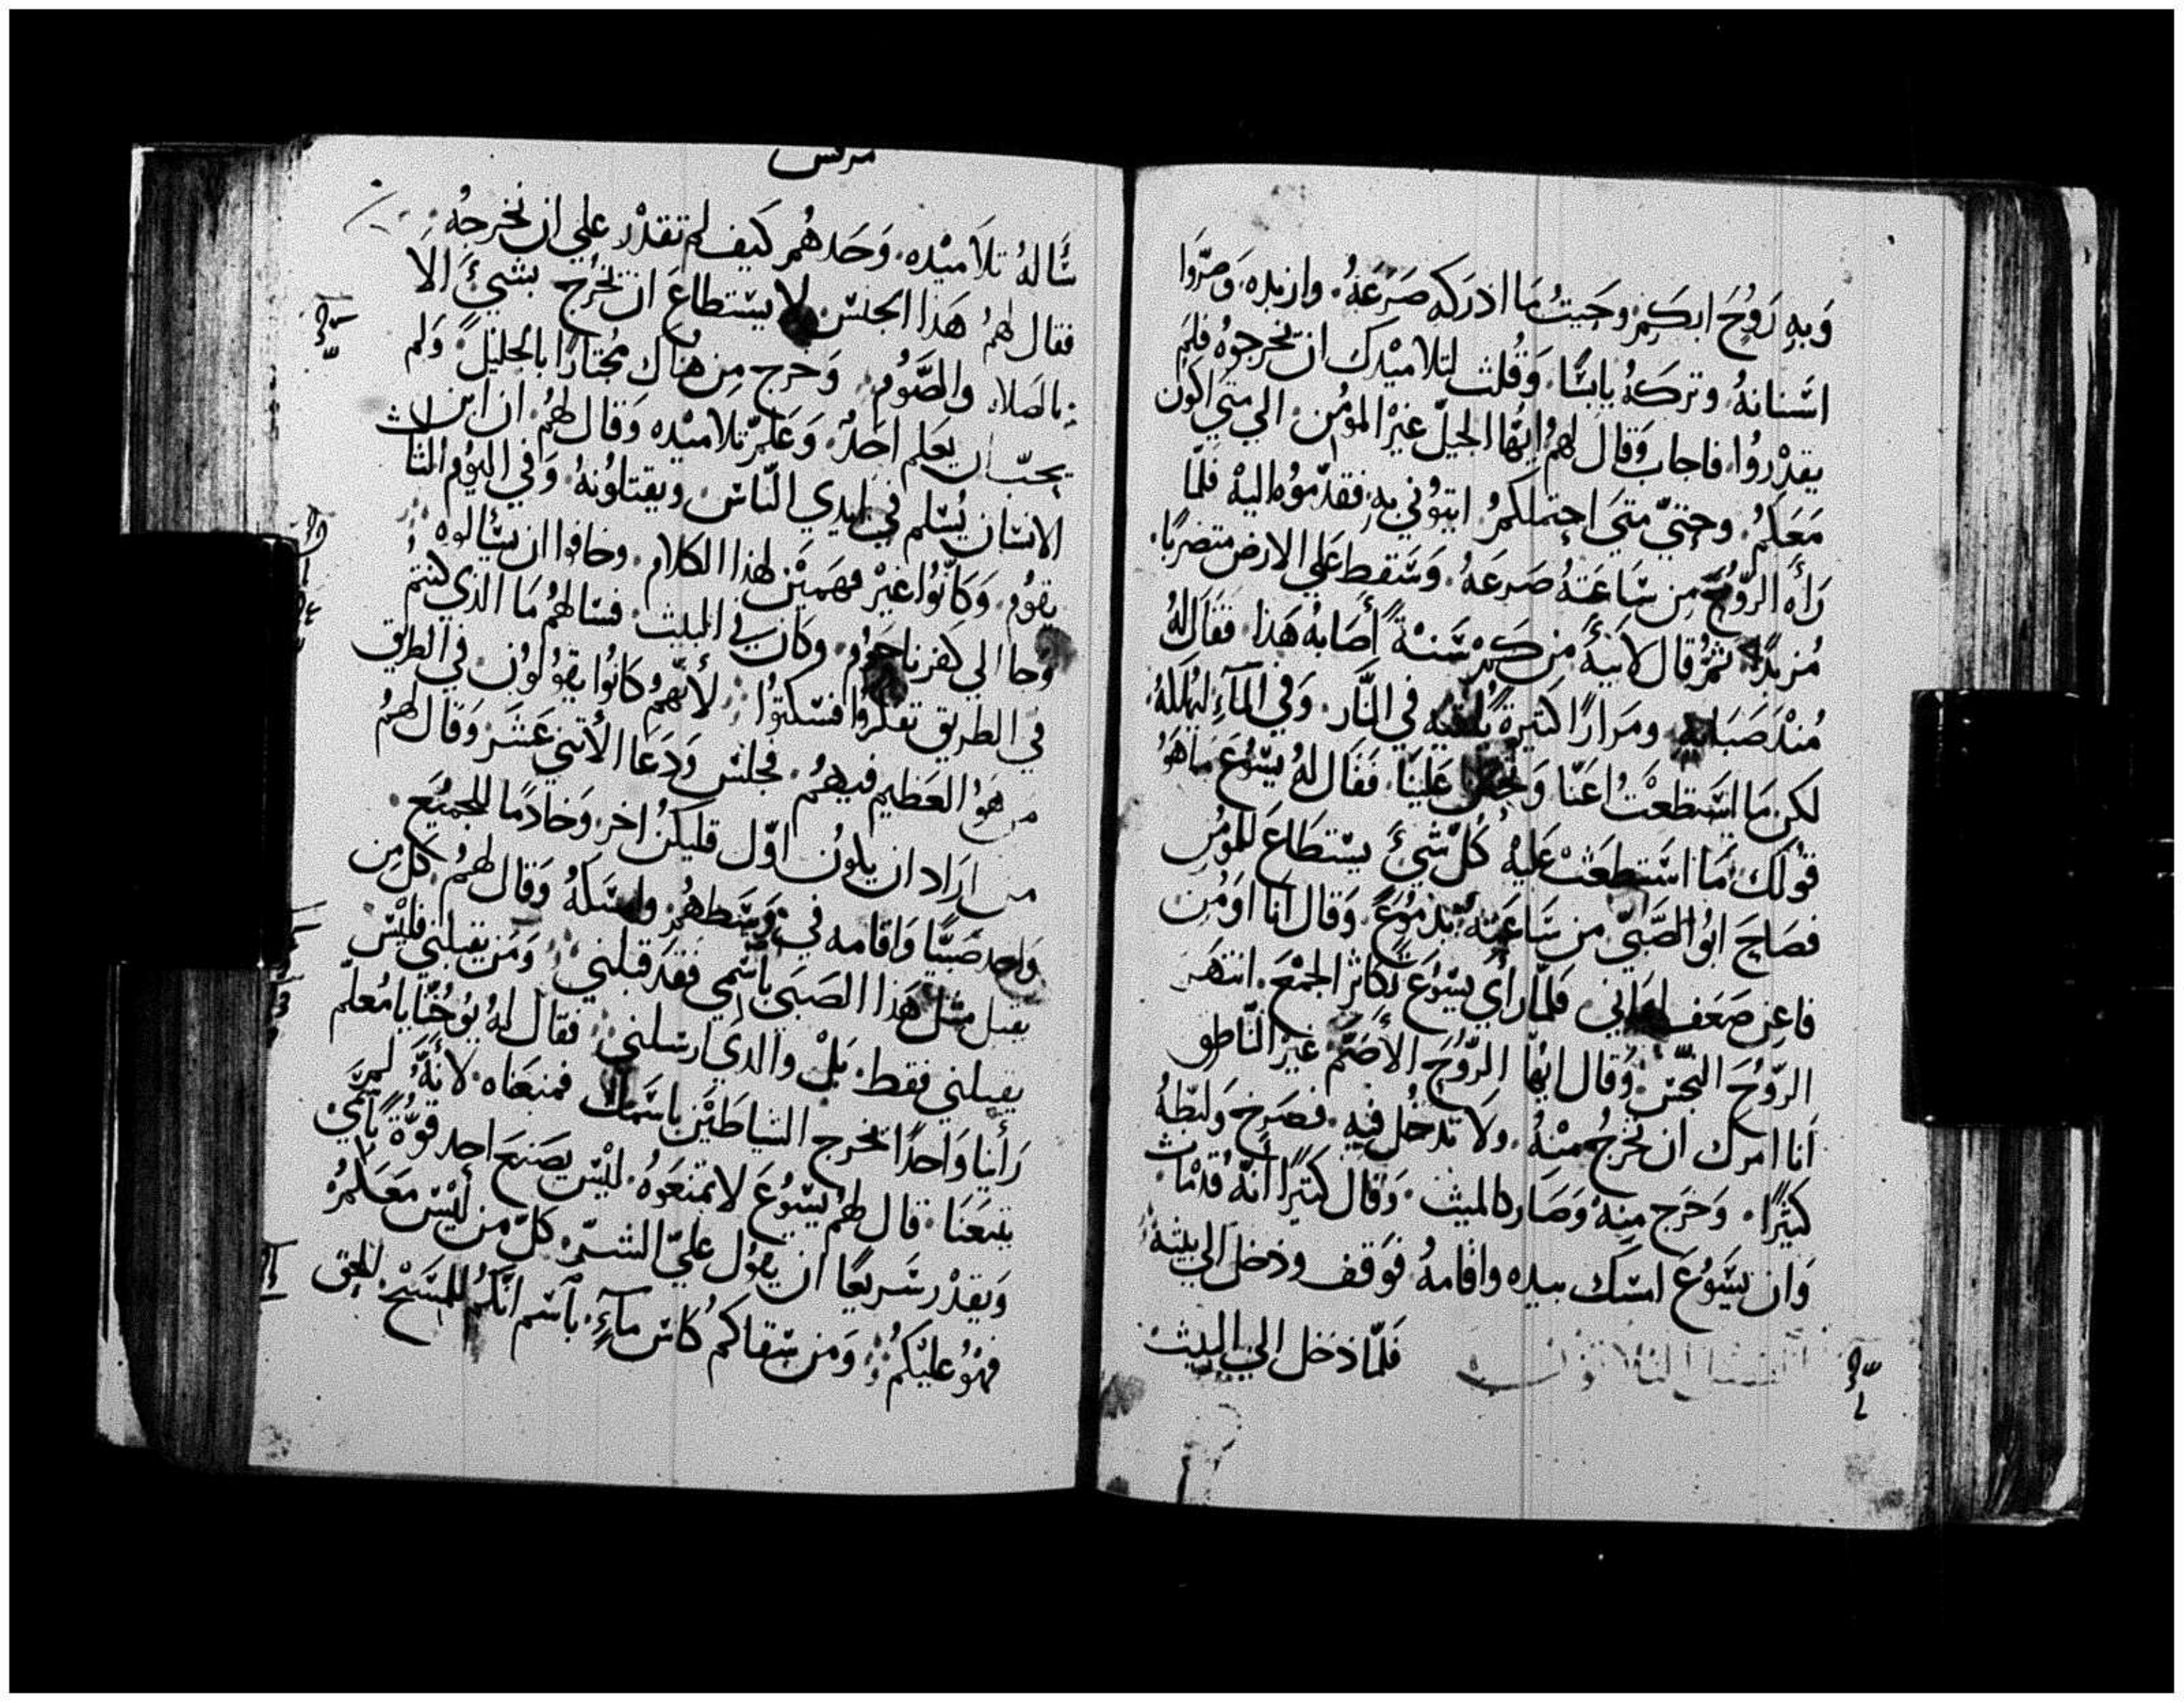 وَبهِ رَوُحَ ابكَمْ وحَيتُ مَا ادرَكه صَرَعَهُ. وازبده. وَصرّوا
اسَنانهُ وتركهُ يابسًا. وَقُلت لتلاميْدك ان يخرجوهُ فلمَ
يقدْروُا. فاجابَ وَقالَ لهمُ ايّها الجيلَ غيْر المؤمن. الي متي اكون
مَعَكمُ. وحتيّ متيَ احتملكمُ ايتوُني بهِ. فقدّموُه اليهْ فلمّا
رَأه الرّوُحَ مِن سَاعَتهُ صَرعَهُ. وَسَقط عَلي الارض متضربًا.
مُزبدًا. ثمُ قال لابيهُ مِن كمْ سَنةً أصَابهُ هَذا. فقالَ لهُ
مُنْدَ صَبَايهِ. ومَرارًا كتيرةً يلُقيه في النّار. وَفي المآءِ ليهُلكهُ.
لكن مَا استَطعْتُ اعَنّا وَتحنن عَليْنا. فقَال لهُ يسوُع مَا هَوُ
قوْلك مَا استطعَتْ عَليْهُ كُلّ شيْءَ يستطاعَ للموُمِن
فصَاحَ ابوُ الصَّبيّ من سَاعَتهُ بدموُعً. وَقال انَا اوُمن
فاعِن ضعَف ايمَاني. فلمّا رأي يسوُعَ تكاثر الجمْعَ. انتهَر
الرّوُحَ النجّسْ وَقال ايهُّا الرّوُحَ الأَصَمّ غيْر النّاطق
اَنا امرك ان تخرجُ منْهُ. ولاَ تدخُل فيهِ. فصَرخ وَلبَطهُ
كثيرًا. وَخَرج مِنهُ وَصَار كالميت. وَقال كتيرًا انّهُ قدْ مات
وَان يسَوُعَ امسَك بيده واقامهُ فوَقف ودخل الي بيتهُ
فَلمّا دَخل الي البيت
مرقس
سَالهُ تلاَميْده. وَحَدهُم كَيف لم تقدْر علي ان نخرجهُ
فقال لهمُ هَذا الجنسْ لا يسْتطاعَ ان يخرُج بشيْءَ الا
بالصَلاه والصَّوُم. وَخَرج مِن هناك مجُتازًا بالجليل. وَلم
يحبّ ان يعَلم احَدٌ. وَعَلمّ تلاميْده وَقال لهمُ. ان ابن
الانسان يُسْلم في ايدي النّاس. ويقتلوُنهُ. وَفي اليوُم الثالث
يقوُم. وَكانوُا غيْر فهَميْن لهَذا الكلام. وخافوا ان يسَالوه
وَجا الي كفرناحَوُم. وَكان في البيت. فسَالهمُ مَا الذي كنتمُ
في الطريق تفكرُوا فسَكتوُا لأنّهمُ كانوُا يقوُلوُن. في الطريق
من هَوُ العَظيم فيهمُ. فجلسَ وَدَعَا الأتني عَشَرَ وَقال لهمُ
من ارَاد ان يكوُن اوّل فليكُن اخر. وَخادمًا للجميْع.
وَاحد صَبيًا وَاقامه فيْ وَسَطهُم. وامسَكهُ وَقال لهمُ كل من
يقبل مثل هَذا الصَبيَ باسْمي فقدَ قبلني وَمَن يقبلني فليْس
يقبلني فقط. بَلْ والدي ارسَلني فقال لهُ يوُحُنّا يا مُعلمّ
رَأينا وَاحدًا يخرج الشياطيْن باسمَك فمنعَناه. لانهَُّ لمْ
يتبَعنَا. قال لهمُ يسوُع لا تمنعَوهُ. ليْسَ يصنعَ احد قوّةً باسْمي
وَيقدْر سَريعًا ان يقوُل عليّ الشرّ. كلّ من ليْسَ مَعَكمُ
فهَوُ عليْكمُ وَمَن سَقاكمُ كاس مآءٍ. باسَم انّكمُ للمسَيْح. للحق